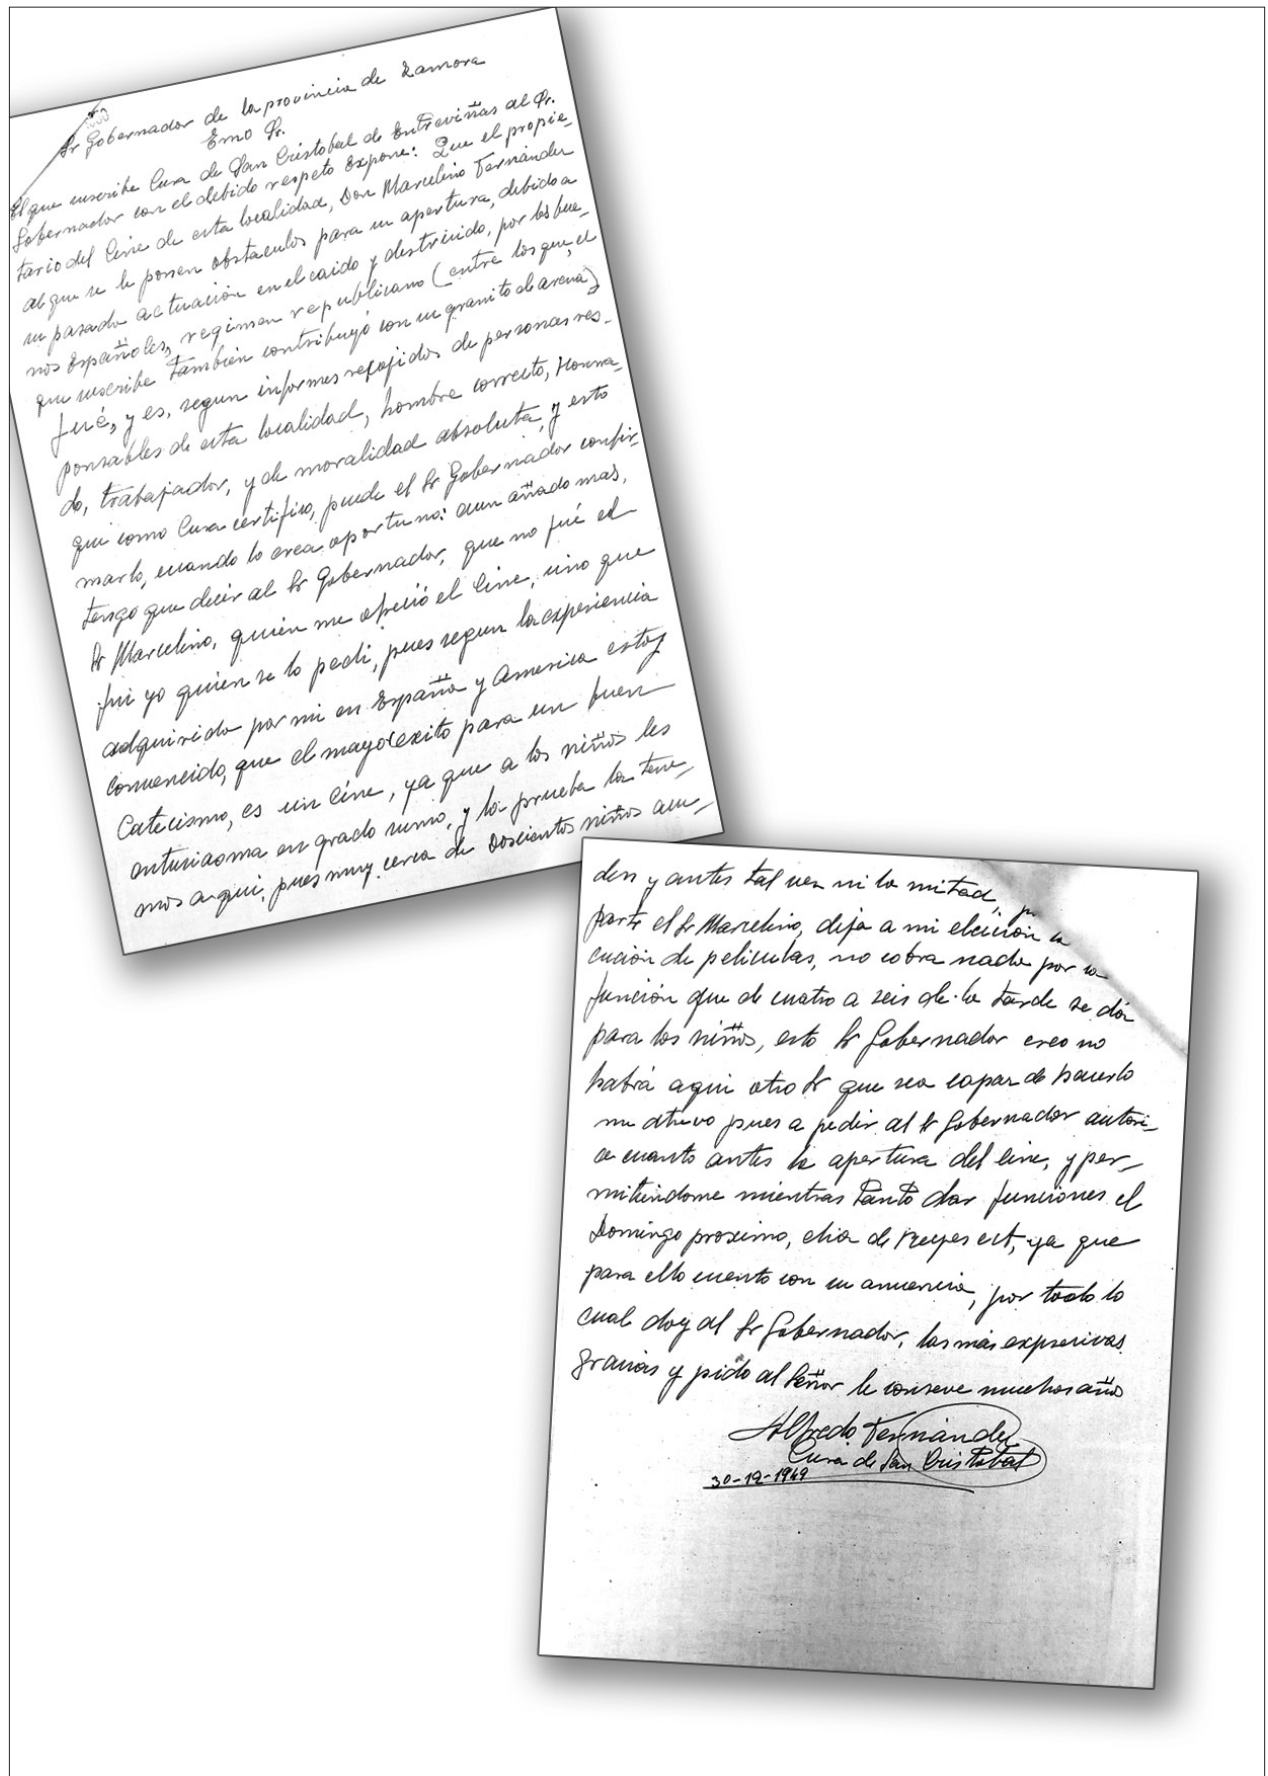 Sr Gobernador de la provincia de Zamora
Exmo Sr.
El que suscribe Cura de San Cristobal de Entreviñas al Sr.
Gobernador con el debido respeto Expone: Que el propie-
tario del Cine de esta localidad, Don Marcelino Fernández
al que se le ponen obstaculos para su apertura, debido a
su pasada actuación en el caido y destruido, por los bue-
nos Españoles, regimen republicano (entre los que, el
que suscribe también contribuyó con su granito de arena)
fué, y es, segun informes refojidos de personas res-
ponsables de esta localidad, hombre correcto, Honra-
do, trabajador, y de moralidad absoluta, y esto
que como Cura certifico, puede el Sr Gobernador confir-
marlo, cuando lo crea oportuno: aun añado mas,
tengo que decir al Sr Gobernador, que no fué el
Sr Marcelino, quién me ofreció el Cine, sino que
fui yo quien se lo pedi, pues segun la experiencia
adquirida por mi en España y America estoy
convencido, que el mayor exito para un buen
Catecismo, es un Cine, ya que a los niños les
entusiasma en grado sumo, y la prueba la tene-
mos aqui, pues muy cerca de doscientos niños acu-
den y antes tal vez ni la mitad,
parte el Sr Marcelino, deja a mi elección
cución de peliculas, no cobra nada por la
función que de cuatro a seis de la tarde se dá
para los niños, esto Sr Gobernador creo no
habrá aqui otro Sr que sea capaz de hacerlo
me atrevo pues a pedir al Sr Gobernador autori-
ce cuanto antes la apertura del Cine, y per-
mitiendome mientras tanto dar funciones el
Domingo proximo, dia de Reyes ect, ya que
para ello cuento con su anuencia, por todo lo
cual doy al Sr Gobernador, las más expresivas
gracias y pido al Señor le conseve muchos año
Alfredo Fernández
Cura de San Cristobal
30-12-1949